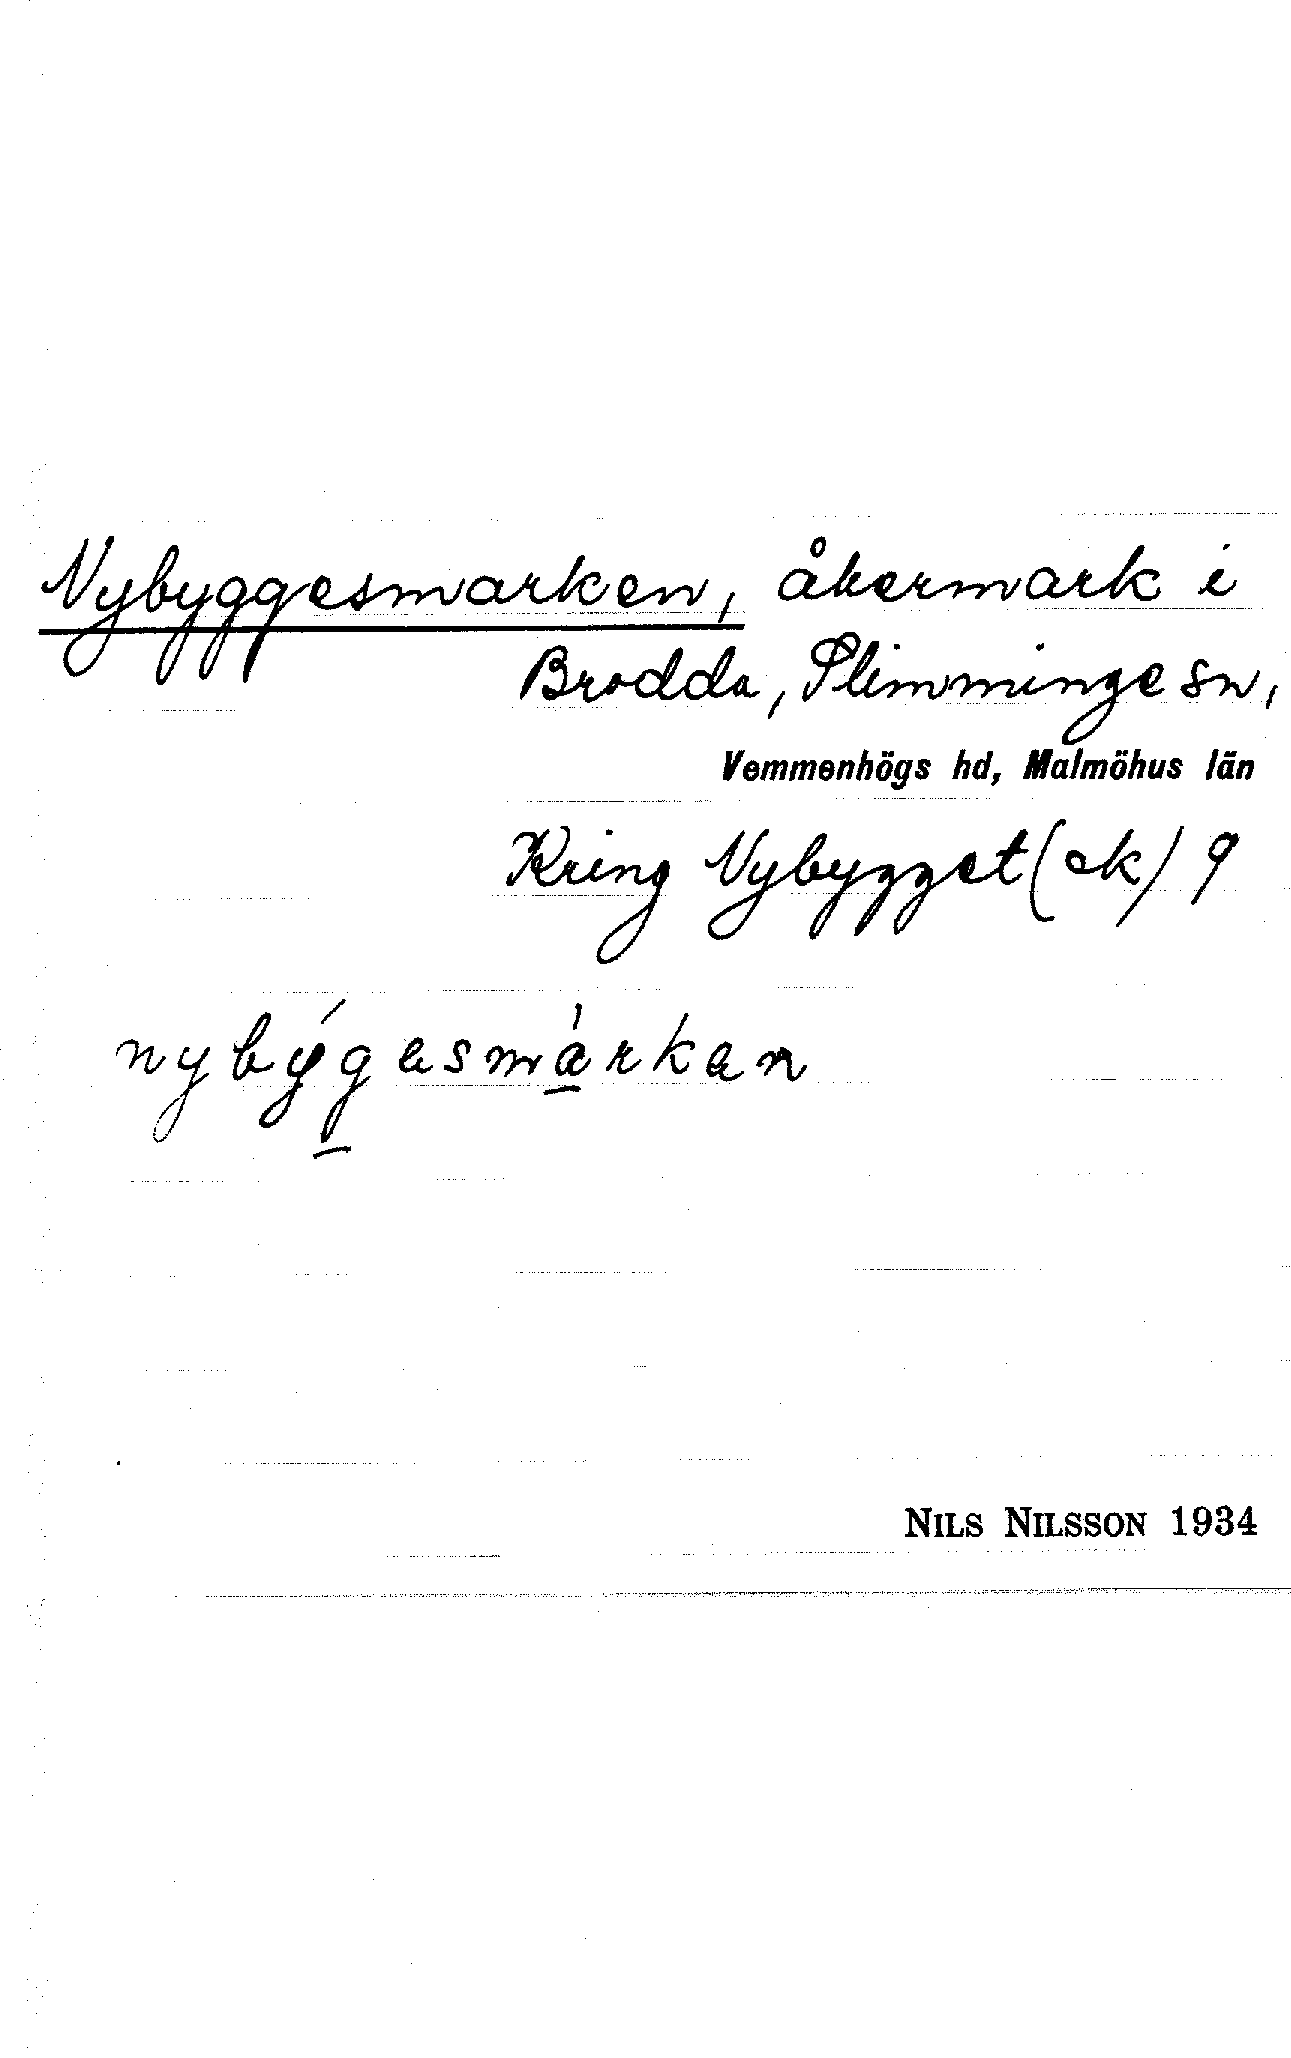 Nybyggesmarken, åkermark i
Brodda, Slimminge sn,
Vemmenhögs hd, Malmöhus län
Kring Nybygget (ek) 9
nybýgesmárkan
NILS NILSSON 1934